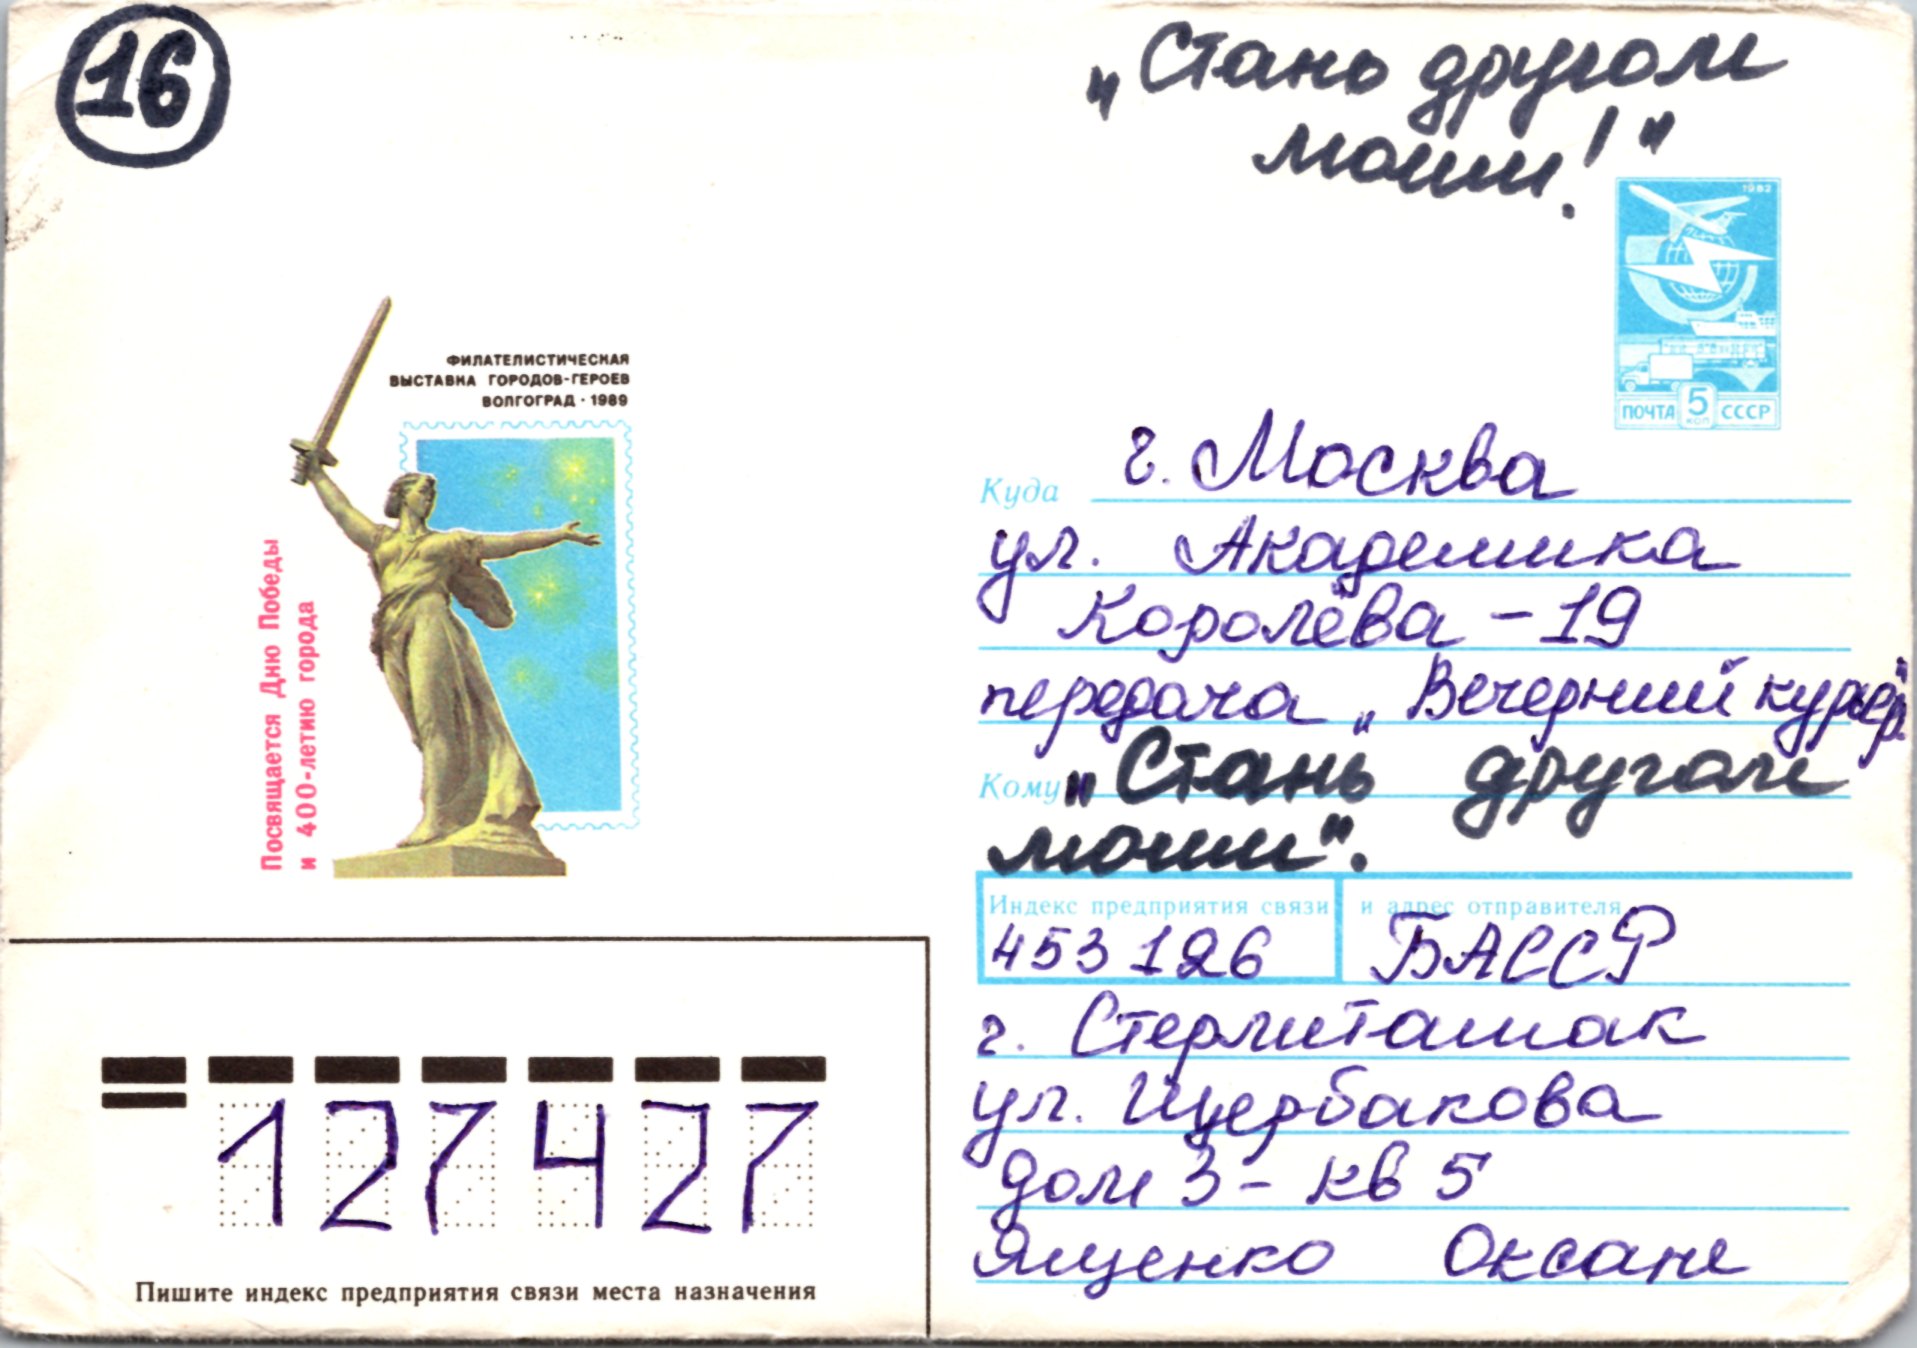 16
„Стань другом
моим!"
1982
ПОЧТА 5 КОП СССР
ФИЛАТЕЛИСТИЧЕСКАЯ
ВЫСТАВКА ГОРОДОВ-ГЕРОЕВ
ВОЛГОГРАД · 1989
Посвящается Дню Победы
и 400-летию города
Куда г. Москва
ул. Академика
Королёва - 19
передача „Вечерний курьер"
Кому „Стань другом
моим".
Индекс предприятия связи и адрес отправителя
453126 БАССР
г. Стерлитамак
ул. Щербакова
дом 3 - кв 5
Ященко Оксане
127427
Пишите индекс предприятия связи места назначения